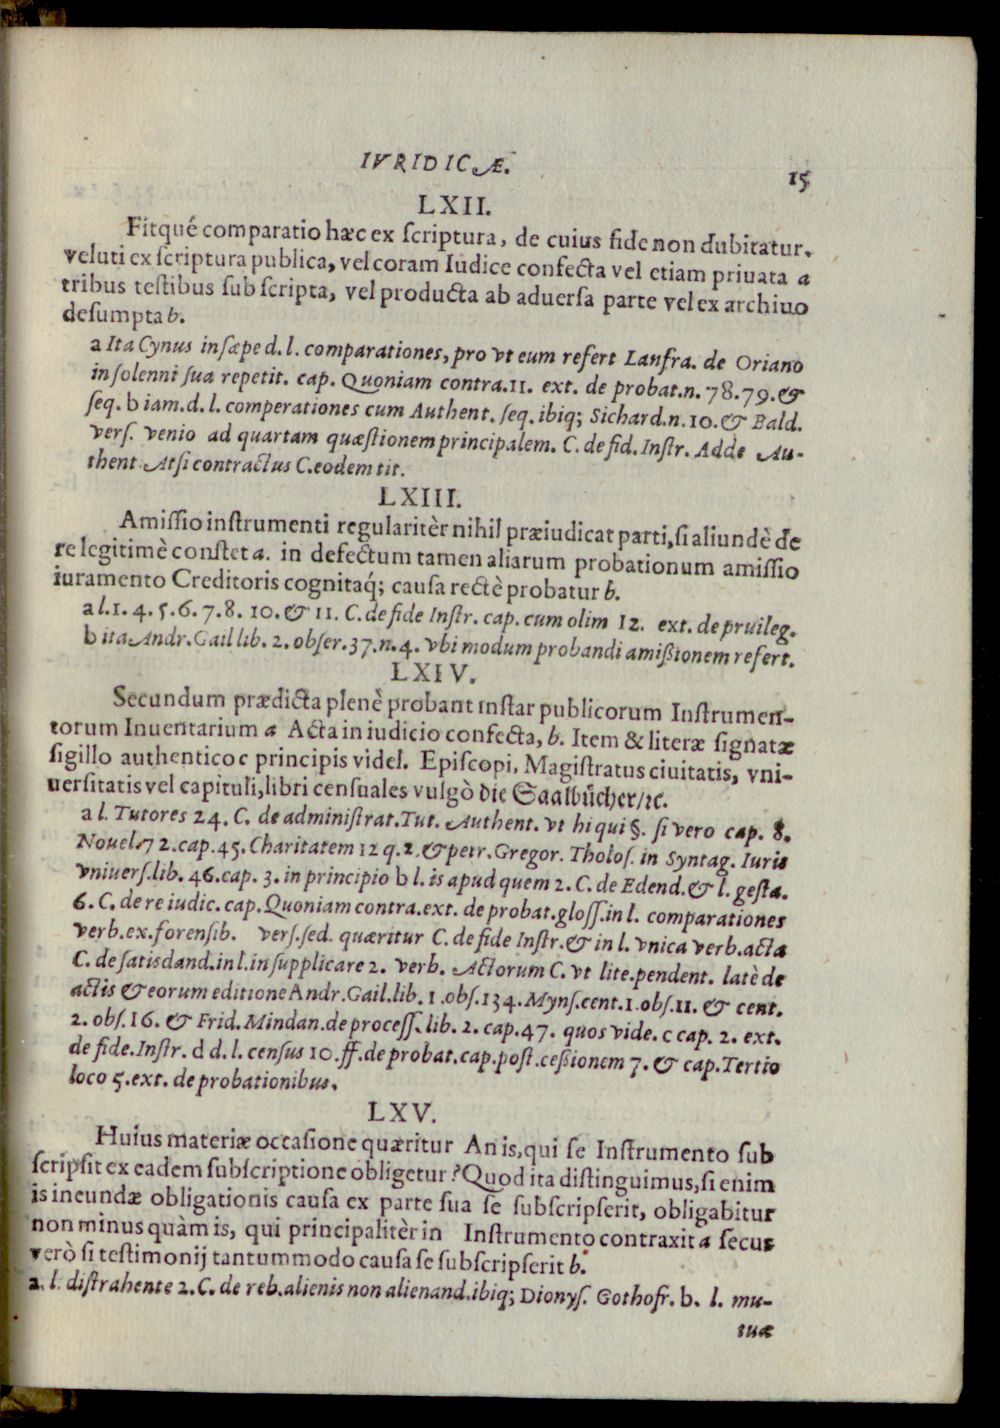 IVRIDICÆ.
15
LXII.
Fitqué comparatio hæc ex ſcriptura, de cuius fide non dubitatur,
veluti ex ſcriptura publica, vel coram Iudice confecta vel etiam priuata a
tribus teſtibus ſubſcripta, vel producta ab aduerſa parte vel ex archiuo
deſumpta b.
a Ita Cynus in ſæpe d. l. comparationes, pro vt eum refert Lanfra. de Oriano
in ſolenni ſua repetit. cap. Quoniam contra. 11. ext. de probat. n. 78. 79. &
ſeq. b iam. d. l. comperationes cum Authent. ſeq. ibiq; Sichard. n. 10. & Bald.
verſ. venio ad quartam quæſtionem principalem. C. de fid. Inſtr. Adde Au-
thent. Atſi contractus C. eodem tit.
LXIII.
Amiſſio inſtrumenti regularitèr nihil præiudicat parti, ſi aliundè de
re legitimè conſtet a. in defectum tamen aliarum probationum amiſſio
iuramento Creditoris cognitaq́; cauſa rectè probatur b.
a l. 1. 4. 5. 6. 7. 8. 10. & 11. C. de fide Inſtr. cap. cum olim 12. ext. de pruileg.
b ita Andr. Gail lib. 2. obſer. 37. n. 4. vbi modum probandi amißionem refert.
LXIV.
Secundum prædicta plenè probant inſtar publicorum Inſtrumen-
torum Inuentarium a Acta in iudicio confecta, b. Item & literæ ſignatæ
ſigillo authentico c principis videl. Epiſcopi, Magiſtratus ciuitatis, vni-
uerſitatis vel capituli, libri cenſuales vulgò die Saalbücher/ꝛc.
a l. Tutores 24. C. de adminiſtrat. Tut. Authent. vt hi qui §. ſi vero cap. 8.
Novel. 72. cap. 45. Charitatem 12 q. 2. & petr. Gregor. Tholoſ. in Syntag. Iuris
vniuerſ. lib. 46. cap. 3. in principio b l. is apud quem 2. C. de Edend. & l. geſta.
6. C. de re iudic. cap. Quoniam contra. ext. de probat. gloſſ. in l. comparationes
verb. ex. forenſib. verſ. ſed. quæritur C. de fide Inſtr. & in l. vnica verb. acta
C. de ſatisdand. in l. in ſupplicare 2. verb. Actorum C. vt lite. pendent. latè de
actis & eorum editione Andr. Gail. lib. 1. obſ. 134. Mynſ. cent. 1. obſ. 11. & cent.
2. obſ. 16. & Frid. Mindan. de proceſſ. lib. 2. cap. 47. quos vide. c cap. 2. ext.
de fide. Inſtr. d d. l. cenſus 10. ff. de probat. cap. poſt. ceßionem 7. & cap. Tertio
loco 5. ext. de probationibus.
LXV.
Huius materiæ occaſione quæritur An is, qui ſe Inſtrumento ſub
ſcripſit ex eadem ſubſcriptione obligetur? Quod ita diſtinguimus, ſi enim
is ineundæ obligationis cauſa ex parte ſua ſe ſubſcripſerit, obligabitur
non minus quàm is, qui principalitèr in Inſtrumento contraxit a ſecus
verò ſi teſtimonij tantummodo cauſa ſe ſubſcripſerit b.
a. l. diſtrahente 2. C. de reb. alienis non alienand. ibiq; Dionyſ. Gothofr. b. l. mu-
tuæ